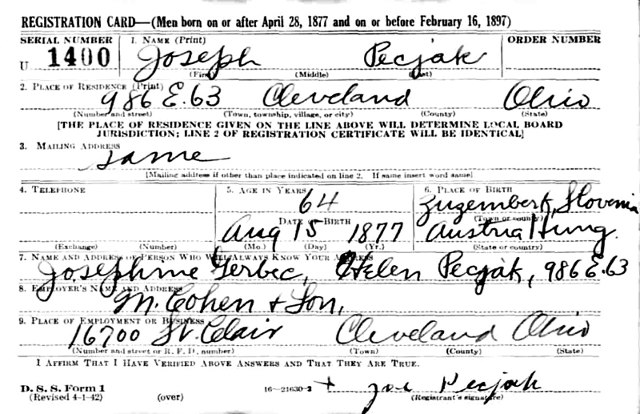 REGISTRATION CARD—(Men born on or after April 28, 1877 and on or before February 16, 1897)
SERIAL NUMBER 1. NAME (Print) ORDER NUMBER
U 1400 Joseph Pecjak
(First) (Middle) (Last)
2. PLACE OF RESIDENCE (Print)
986 E. 63 Cleveland Ohio
(Number and street) (Town, township, village, or city) (County) (State)
[THE PLACE OF RESIDENCE GIVEN ON THE LINE ABOVE WILL DETERMINE LOCAL BOARD
JURISDICTION; LINE 2 OF REGISTRATION CERTIFICATE WILL BE IDENTICAL]
3. MAILING ADDRESS
same
[Mailing address if other than place indicated on line 2. If same insert word same]
4. TELEPHONE 5. AGE IN YEARS 6. PLACE OF BIRTH
64 Zuzemberk, Slovenia
DATE OF BIRTH (Town or county)
Aug 15 1877 Austria Hung.
(Exchange) (Number) (Mo.) (Day) (Yr.) (State or country)
7. NAME AND ADDRESS OF PERSON WHO WILL ALWAYS KNOW YOUR ADDRESS
Josephine Gerbec, Helen Pecjak, 986 E. 63
8. EMPLOYER'S NAME AND ADDRESS
M. Cohen + Son,
9. PLACE OF EMPLOYMENT OR BUSINESS
16700 St. Clair Cleveland Ohio
(Number and street or R. F. D. number) (Town) (County) (State)
I AFFIRM THAT I HAVE VERIFIED ABOVE ANSWERS AND THAT THEY ARE TRUE.
D. S. S. Form 1
(Revised 4-1-42) (over) 16—21630-2 + Joe Pecjak
(Registrant's signature)